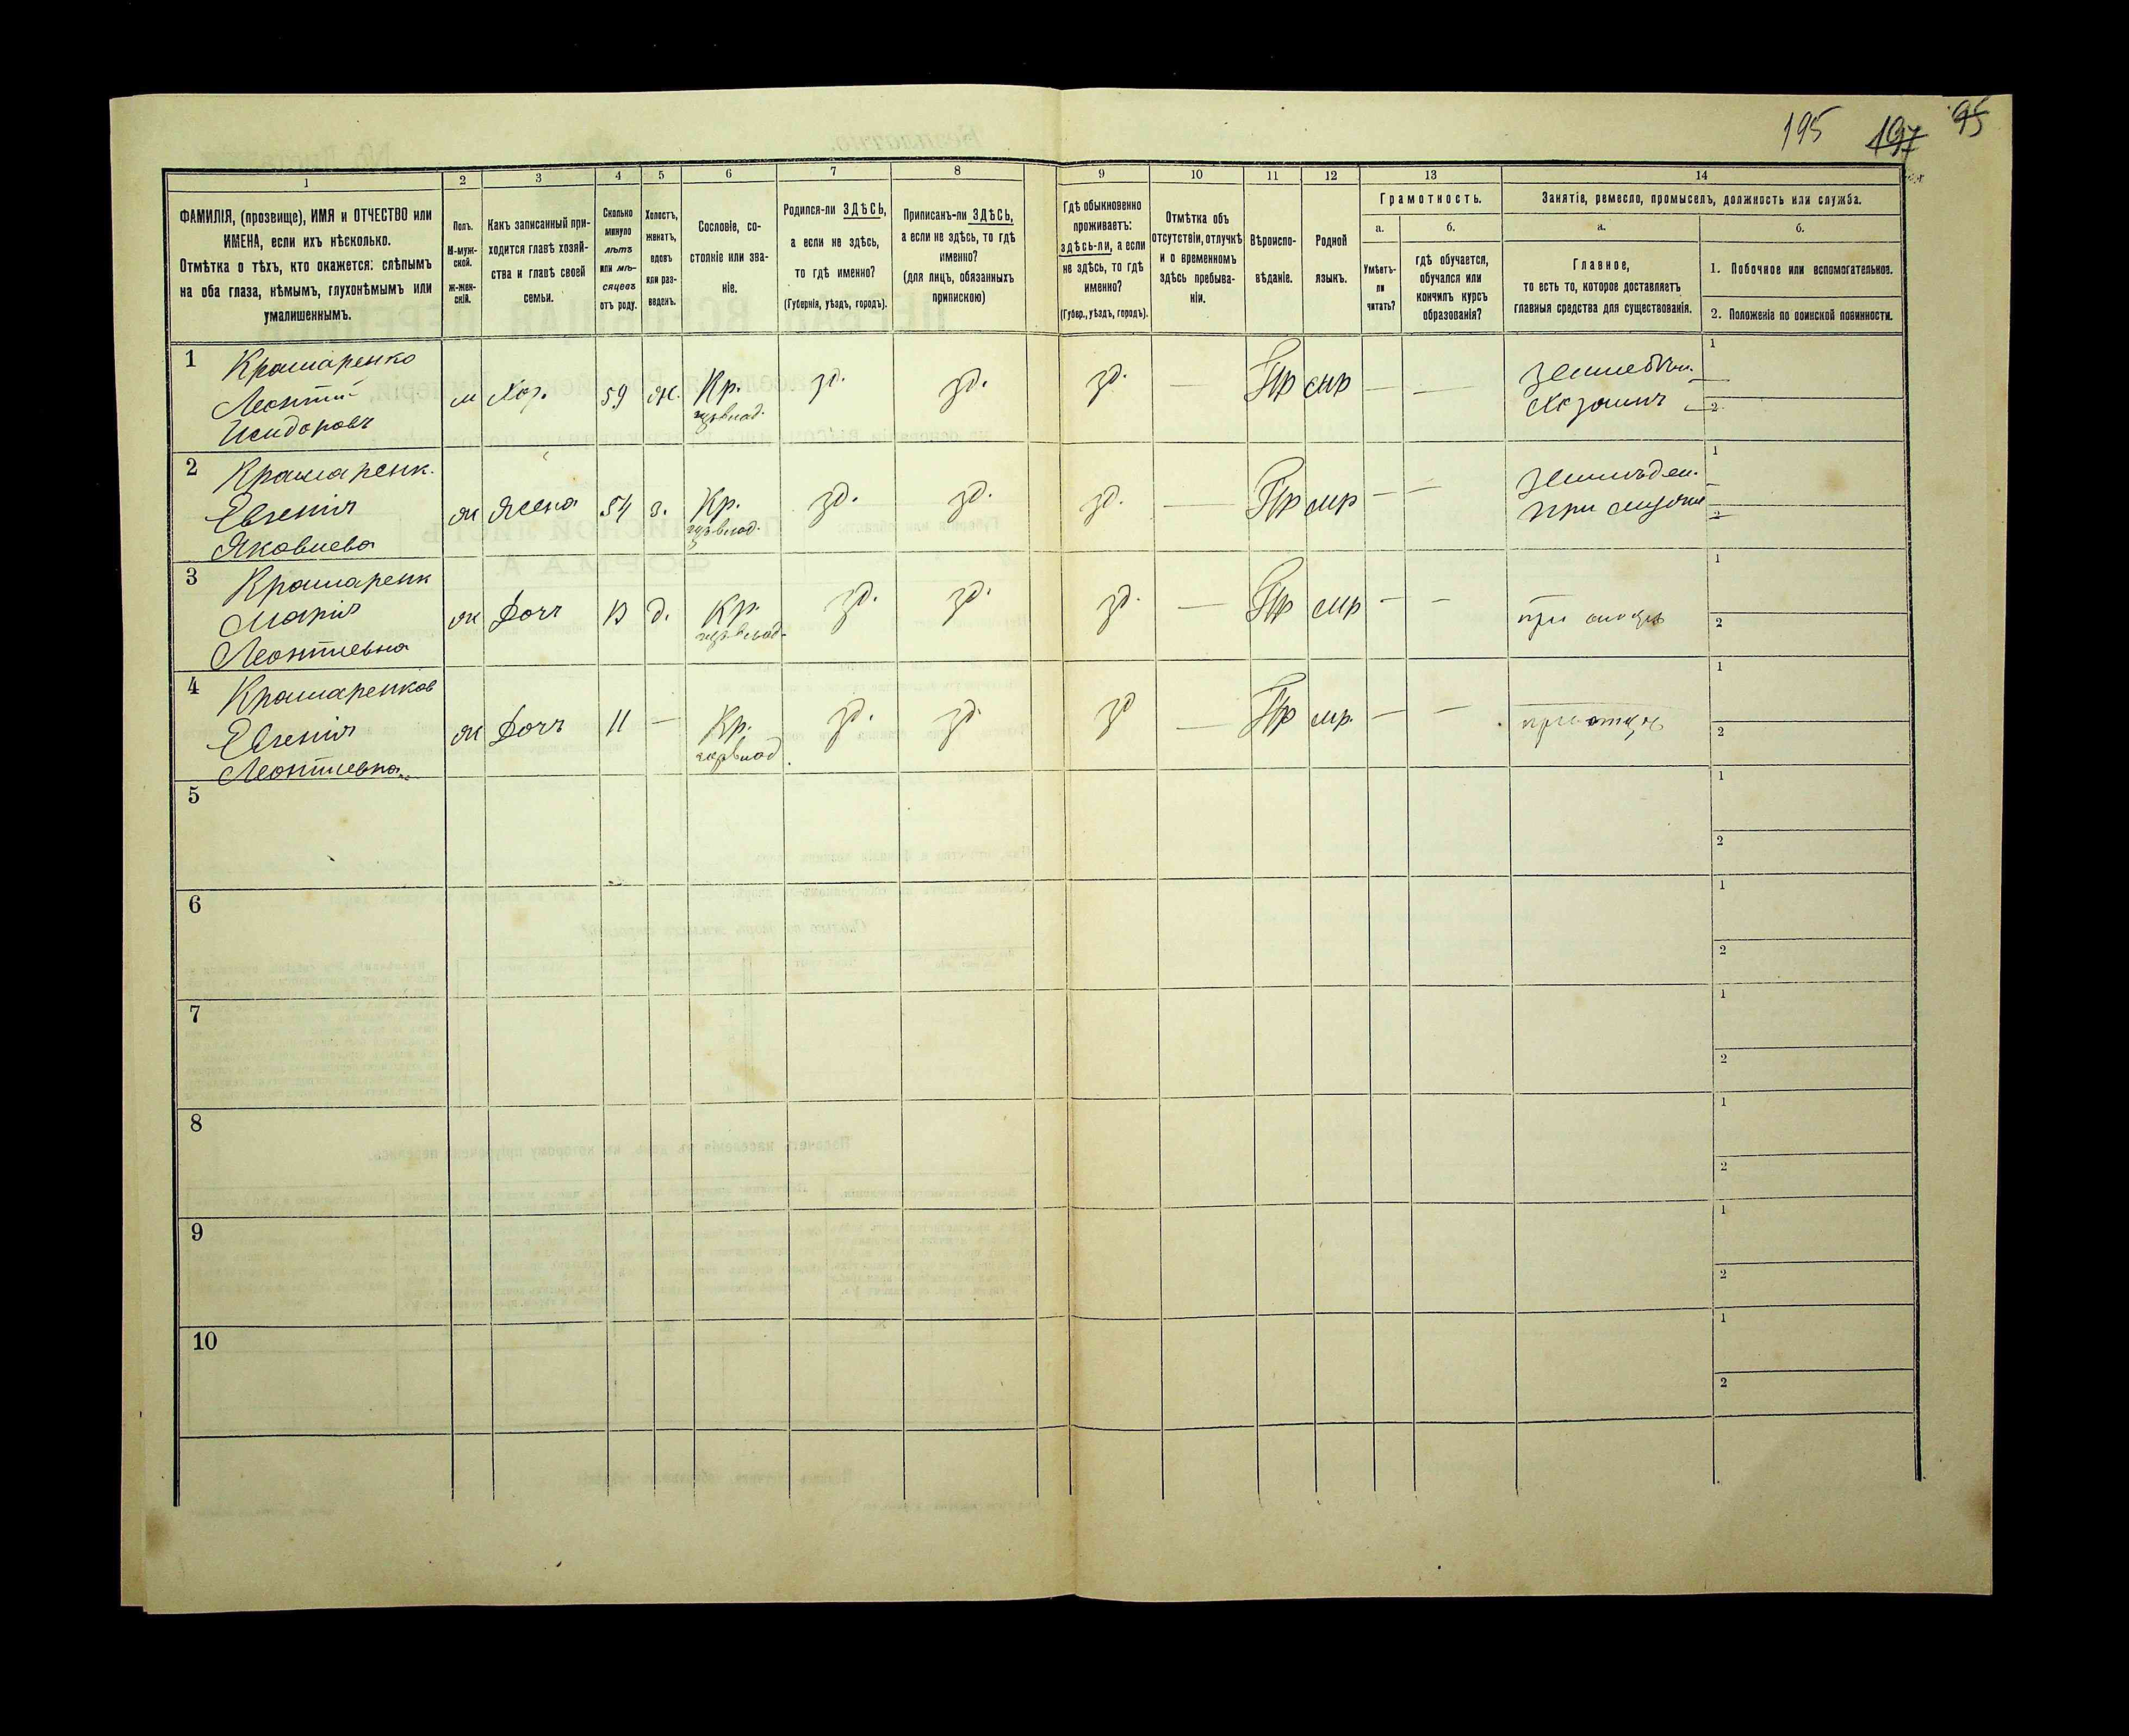 195 197 95
1 2 3 4 5 6 7 8 9 10 11 12 13 14
ФАМИЛІЯ, (прозвище), ИМЯ и ОТЧЕСТВО или
ИМЕНА, если ихъ нѣсколько.
Отмѣтка о тѣхъ, кто окажется: слѣпымъ
на оба глаза, нѣмымъ, глухонѣмымъ или
умалишеннымъ.
Полъ.
М-муж-
ской.
ж-жен-
скій.
Какъ записанный при-
ходится главѣ хозяй-
ства и главѣ своей
семьи.
Сколько
минуло
лѣтъ
или мѣ-
сяцевъ
отъ роду.
Холостъ,
женатъ,
вдовъ
или раз-
веденъ.
Сословіе, со-
стояніе или зва-
ніе.
Родился-ли ЗДѢСЬ,
а если не здѣсь,
то гдѣ именно?
(Губернія, уѣздъ, городъ).
Приписанъ-ли ЗДѢСЬ,
а если не здѣсь, то гдѣ
именно?
(для лицъ, обязанныхъ
припискою)
Гдѣ обыкновенно
проживаетъ:
здѣсь-ли, а если
не здѣсь, то гдѣ
именно?
(Губер., уѣздъ, городъ).
Отмѣтка объ
отсутствіи, отлучкѣ
и о временномъ
здѣсь пребыва-
ніи.
Вѣроиспо-
вѣданіе.
Родной
языкъ.
Грамотность.
а.
Умѣетъ-
ли
читать?
б.
гдѣ обучается,
обучался или
кончилъ курсъ
образованія?
Занятіе, ремесло, промыселъ, должность или служба.
а.
Главное,
то есть то, которое доставляетъ
главныя средства для существованія.
б.
1. Побочное или вспомогательное.
2. Положеніе по воинской повинности.
1 Крамаренко
Леонтій
Исидоровъ
м Хоз. 59 ж. Кр. зд. зд. зд. — Пр мр — —
Хозяинъ
1
2
2 Крамаренк.
Евгенія
Яковлева
ж Жена 54 з. Кр. зд. зд. зд. — Пр мр — —
земледел.
при мужѣ
1
2
3 Крамаренк
Марія
Леонтіевна
ж Дочь 13 д. Кр. зд. зд. зд. — Пр мр — —
при отцѣ
1
2
4 Крамаренков
Евгенія
Леонтіевна
ж Дочь 11 — Кр. зд. зд. зд — Пр мр. — —
при отцѣ
1
2
5
1
2
6
1
2
7
1
2
8
1
2
9
1
2
10
1
2